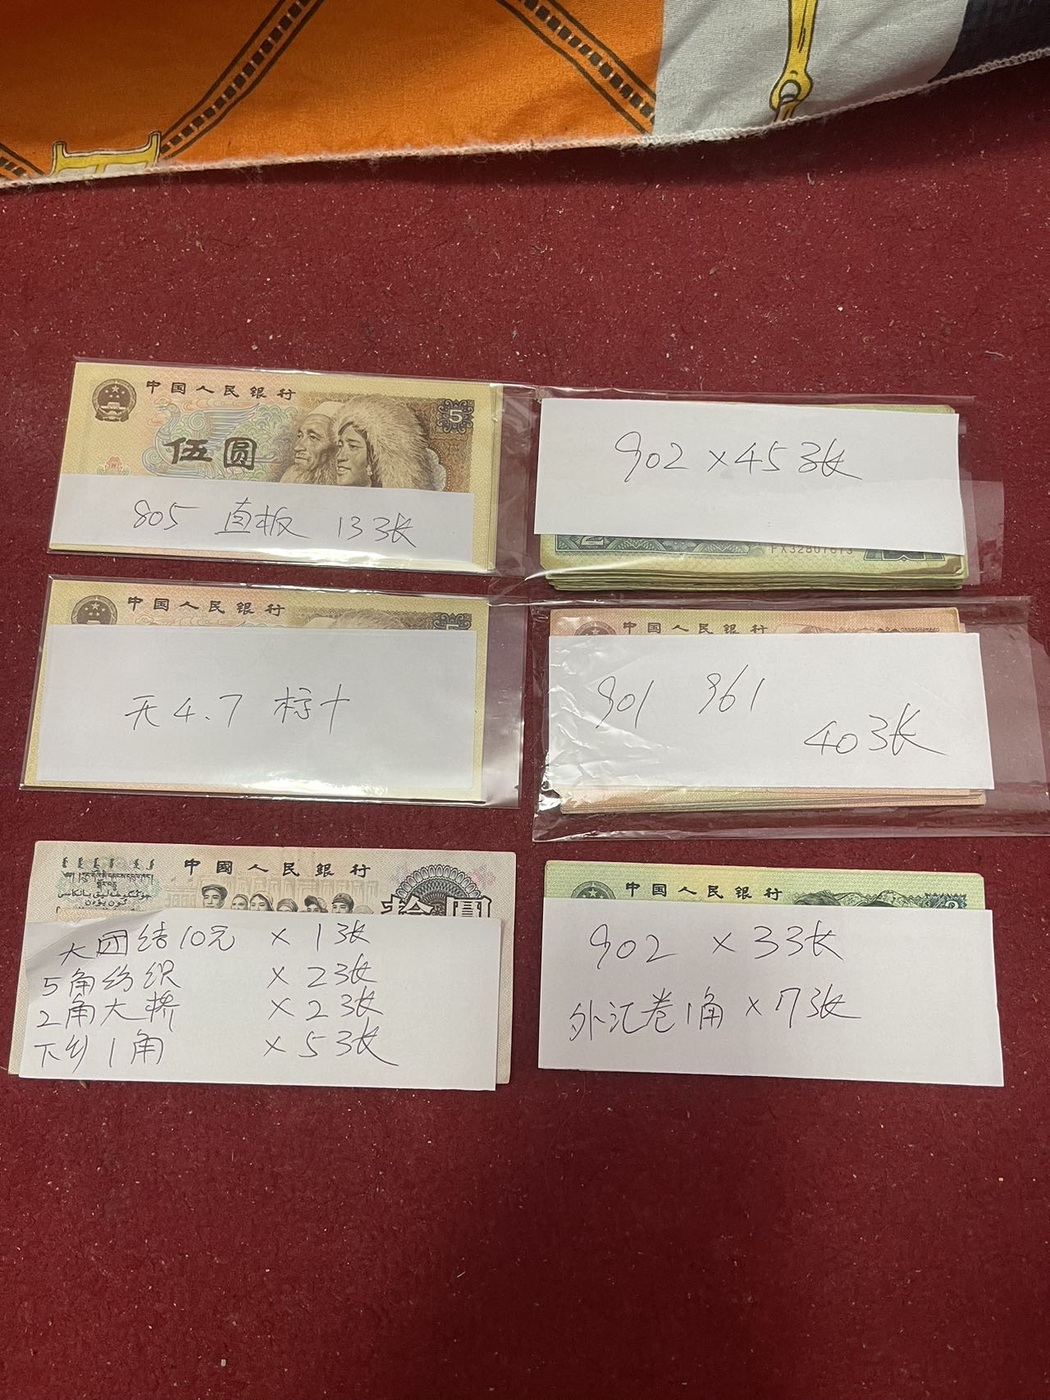 中国人民银行
伍圆
5
805 直板 13张
902 ×45张
2
PX32807613
中国人民银行
无4.7 标十
中国人民银行
901 961
40张
中國人民銀行
拾圓
大团结10元 × 1张
5角纺织 × 2张
2角大桥 × 2张
下乡1角 × 5张
中国人民银行
902 ×33张
外汇卷1角 ×7张